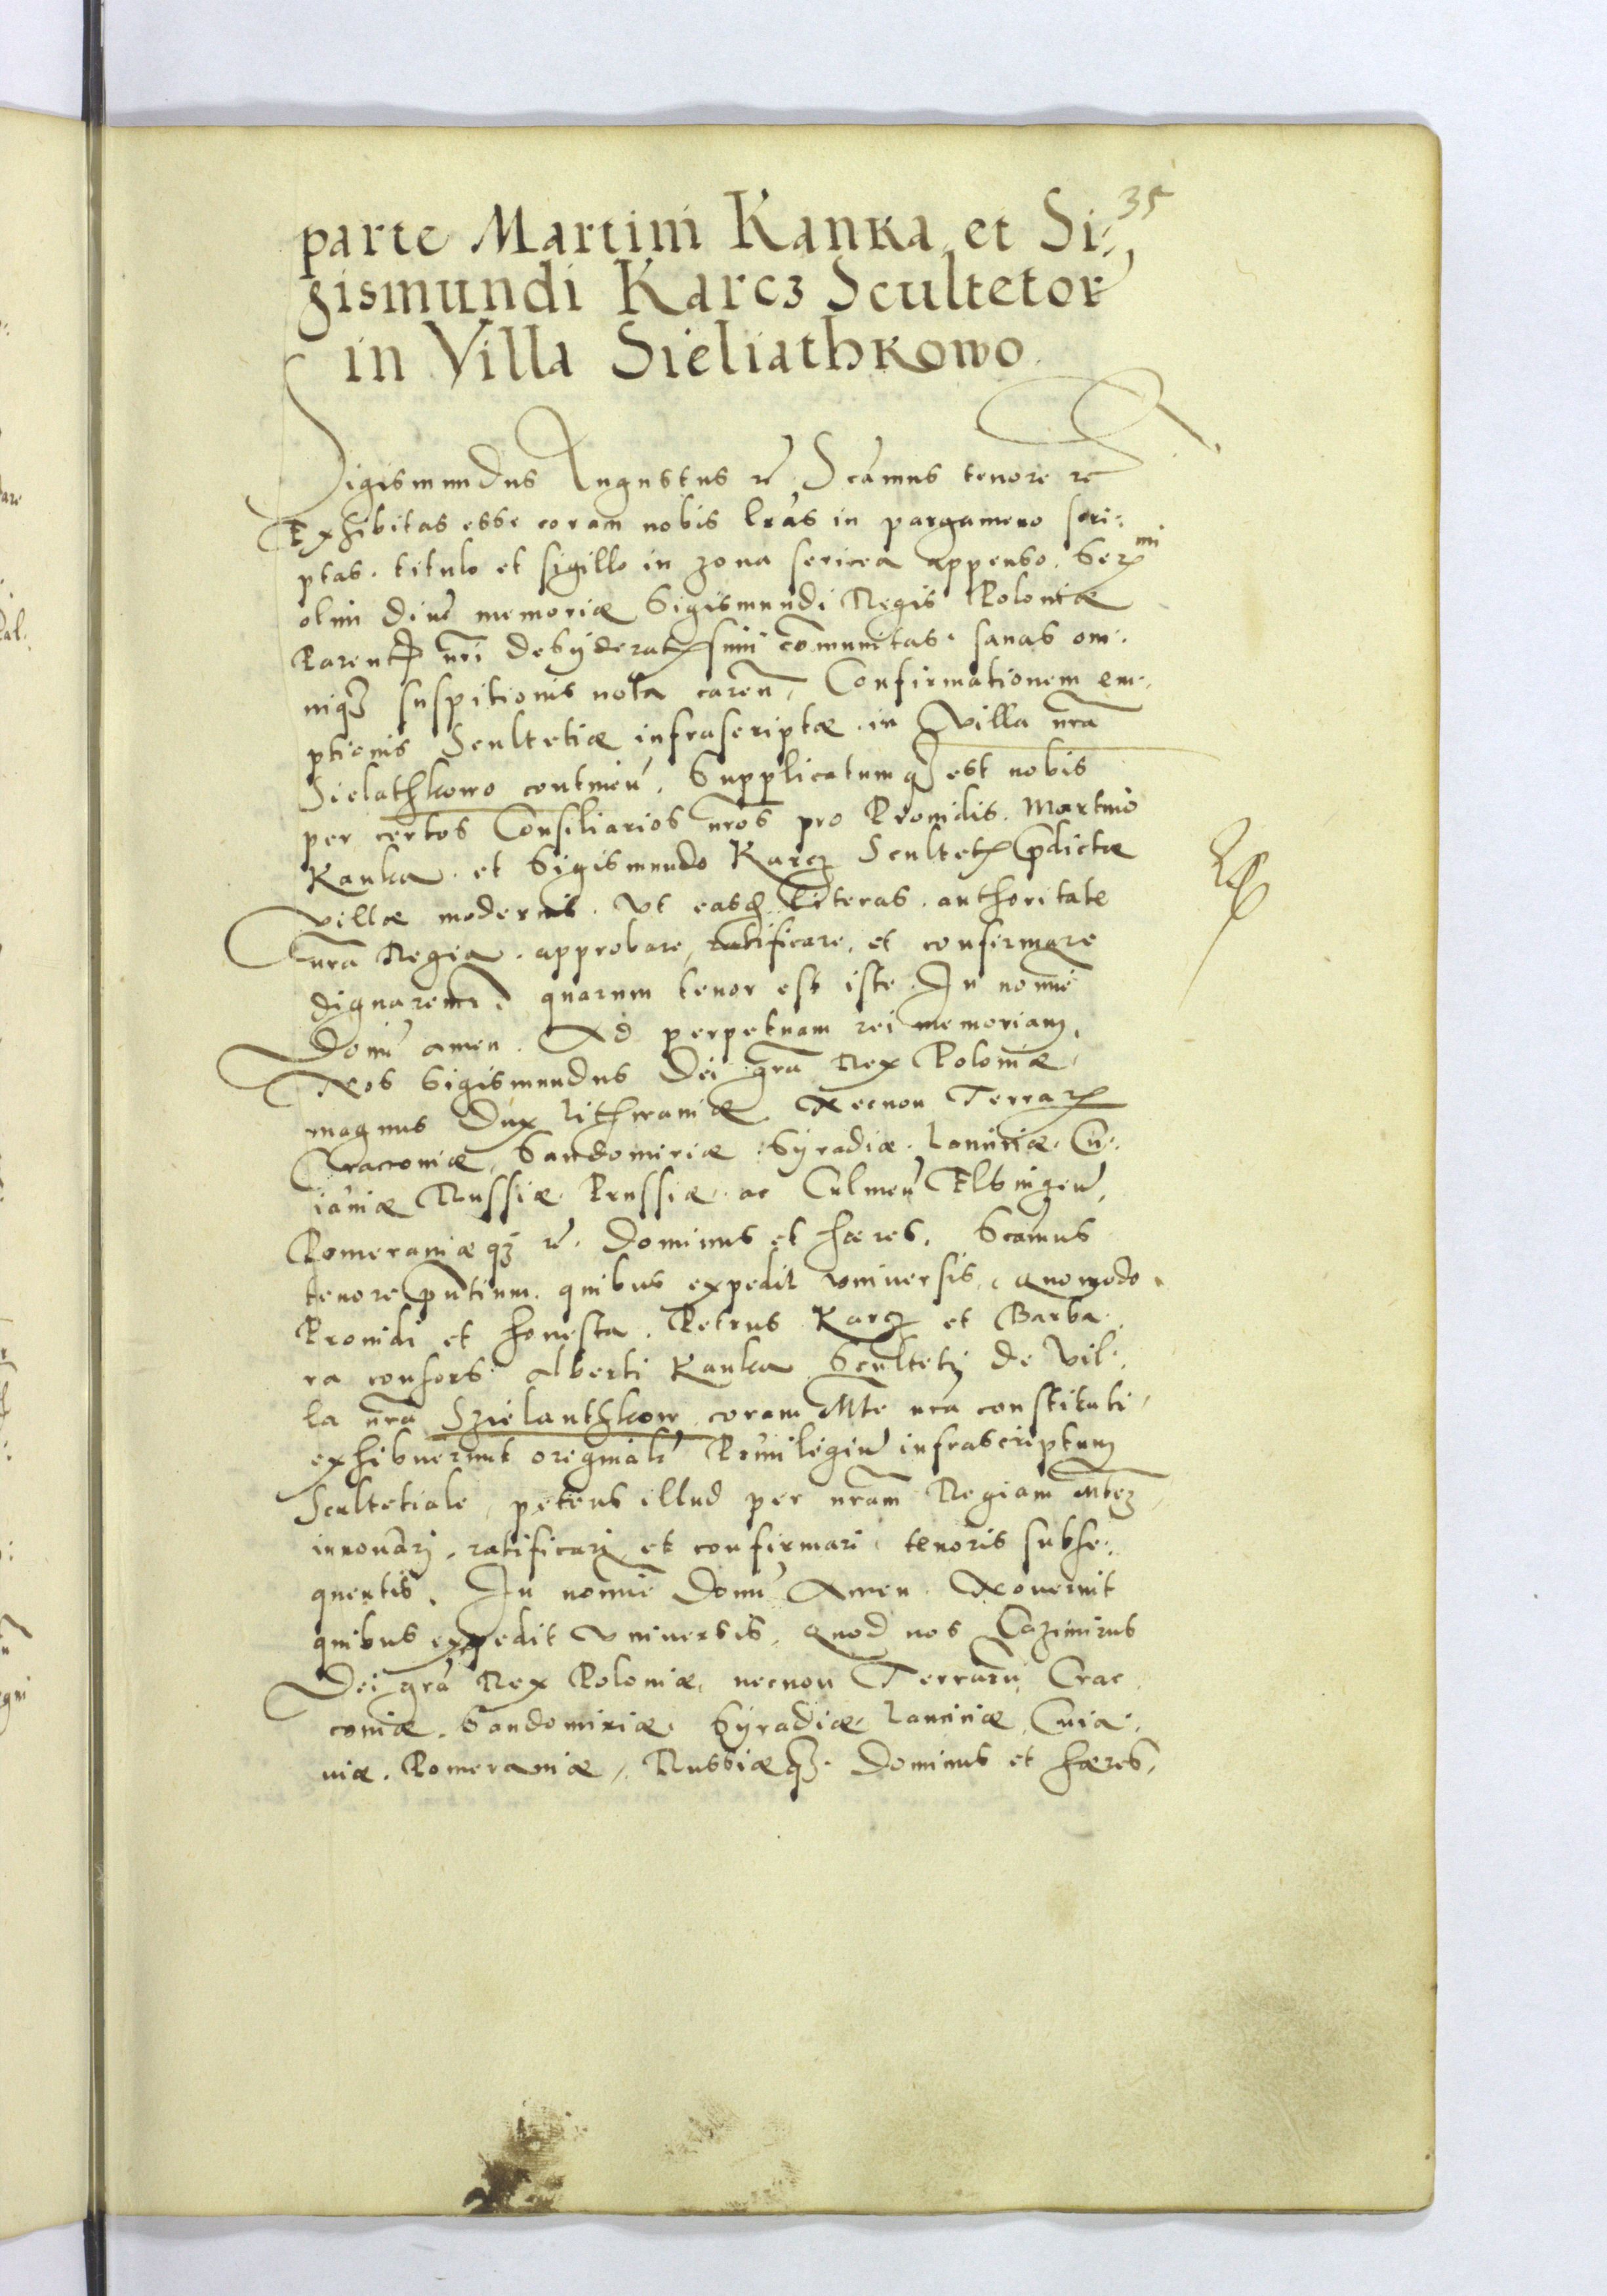 35
parte Martini Kanka et Si:
gismundi Karcz Scultetor
in Villa Sieliathkowo.
Sigismundus Augustus rc Scamus tenore rc
Exhibitas esse coram nobis lras in pargameno scri:
ptas. titulo et sigillo in zona sericea appenso. Ser mi
olim dive memoriæ Sigismundi Regis Poloniæ
Parent nri desyderatssimi comunitas. sanas om:
niq3 suspitionis nota caren, Confirmationem em:
ptionis Scultetiæ infrascriptæ. in Villa nra
Sielathkowo continen, Supplicatumq3 est nobis
per certos Consiliarios nros pro Providis. Martino
Kanka. et Sigismundo Karcz Scultet pdictæ
villæ modernis. Ut easd literas. authoritate
nra Regia. approbare, ratificare, et confirmare
dignaremr. quarum tenor est iste. In nomine
Domi amen. Ad perpetuam rei memoriam.
Nos Sigismundus Dei gra Rex Poloniæ,
magnus Dux Lithvaniæ. Necnon Terrar
Cracoviæ, Sandomiriæ. Syradiæ. Lanciciæ. Cu:
iaviæ Russiæ. Prussiæ. ac Culmen Elbingen,
Pomeraniæq3 rc. Dominus et hæres. Scamus
tenore pntium. quibus expedit universis, quomodo
Providi et honesta. Petrus Karcz et Barba:
ra consors Alberti Kanka Sculteti de Vil:
la nra Szielanthkow coram Mte nra constituti,
exhibuerunt originale Privilegiu infrascriptum
Scultetiale, petens illud per nram Regiam Mtem
innovari, ratificari et confirmari. tenoris subse:
quentis. In nomine Domi Amen. Noverint
quibus expedit Universis, quod nos Cazimirus
Dei gra Rex Poloniæ, necnon Terraru Crac
coviæ. Sandomiriæ. Syradiæ. Lanciciæ, Cuia:
viæ. Pomeraniæ, Russiæq3. Dominus et hæres,